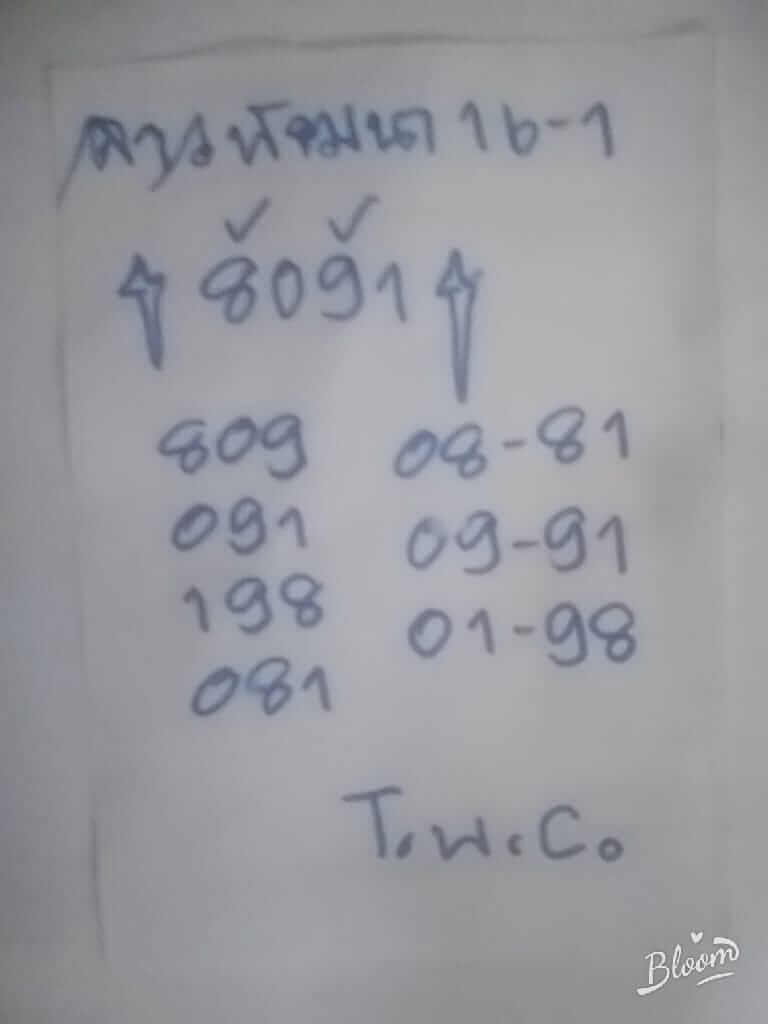 สาวพัฒนา 16-1
8091
809 08-81
091 09-91
198 01-98
081
T.W.C.
Bloom